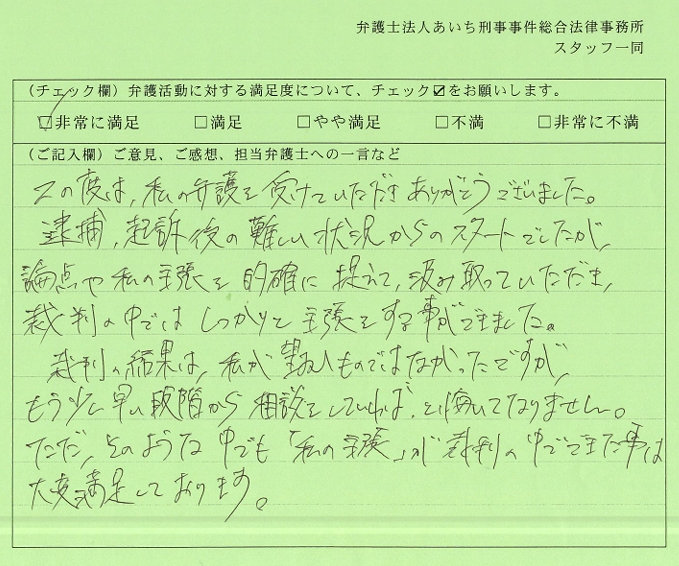 弁護士法人あいち刑事事件総合法律事務所
スタッフ一同
（チェック欄）弁護活動に対する満足度について、チェック☑をお願いします。
☑非常に満足 □満足 □やや満足 □不満 □非常に不満
（ご記入欄）ご意見、ご感想、担当弁護士への一言など
この度は、私の弁護を受けていただきありがとうございました。
逮捕、起訴後の難しい状況からのスタートでしたが、
論点や私の主張を的確に捉えて、汲み取っていただき、
裁判の中ではしっかりと主張をする事ができました。
裁判の結果は、私が望むものではなかったですが、
もう少し早い段階から相談をしていれば、と悔いてなりません。
ただ、そのような中でも「私の主張」が裁判の中でできた事は
大変満足しております。